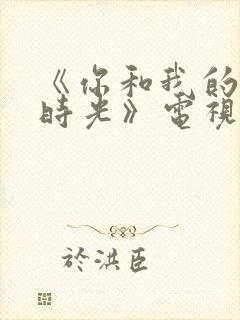 《你和我的
時光》電視
於洪臣